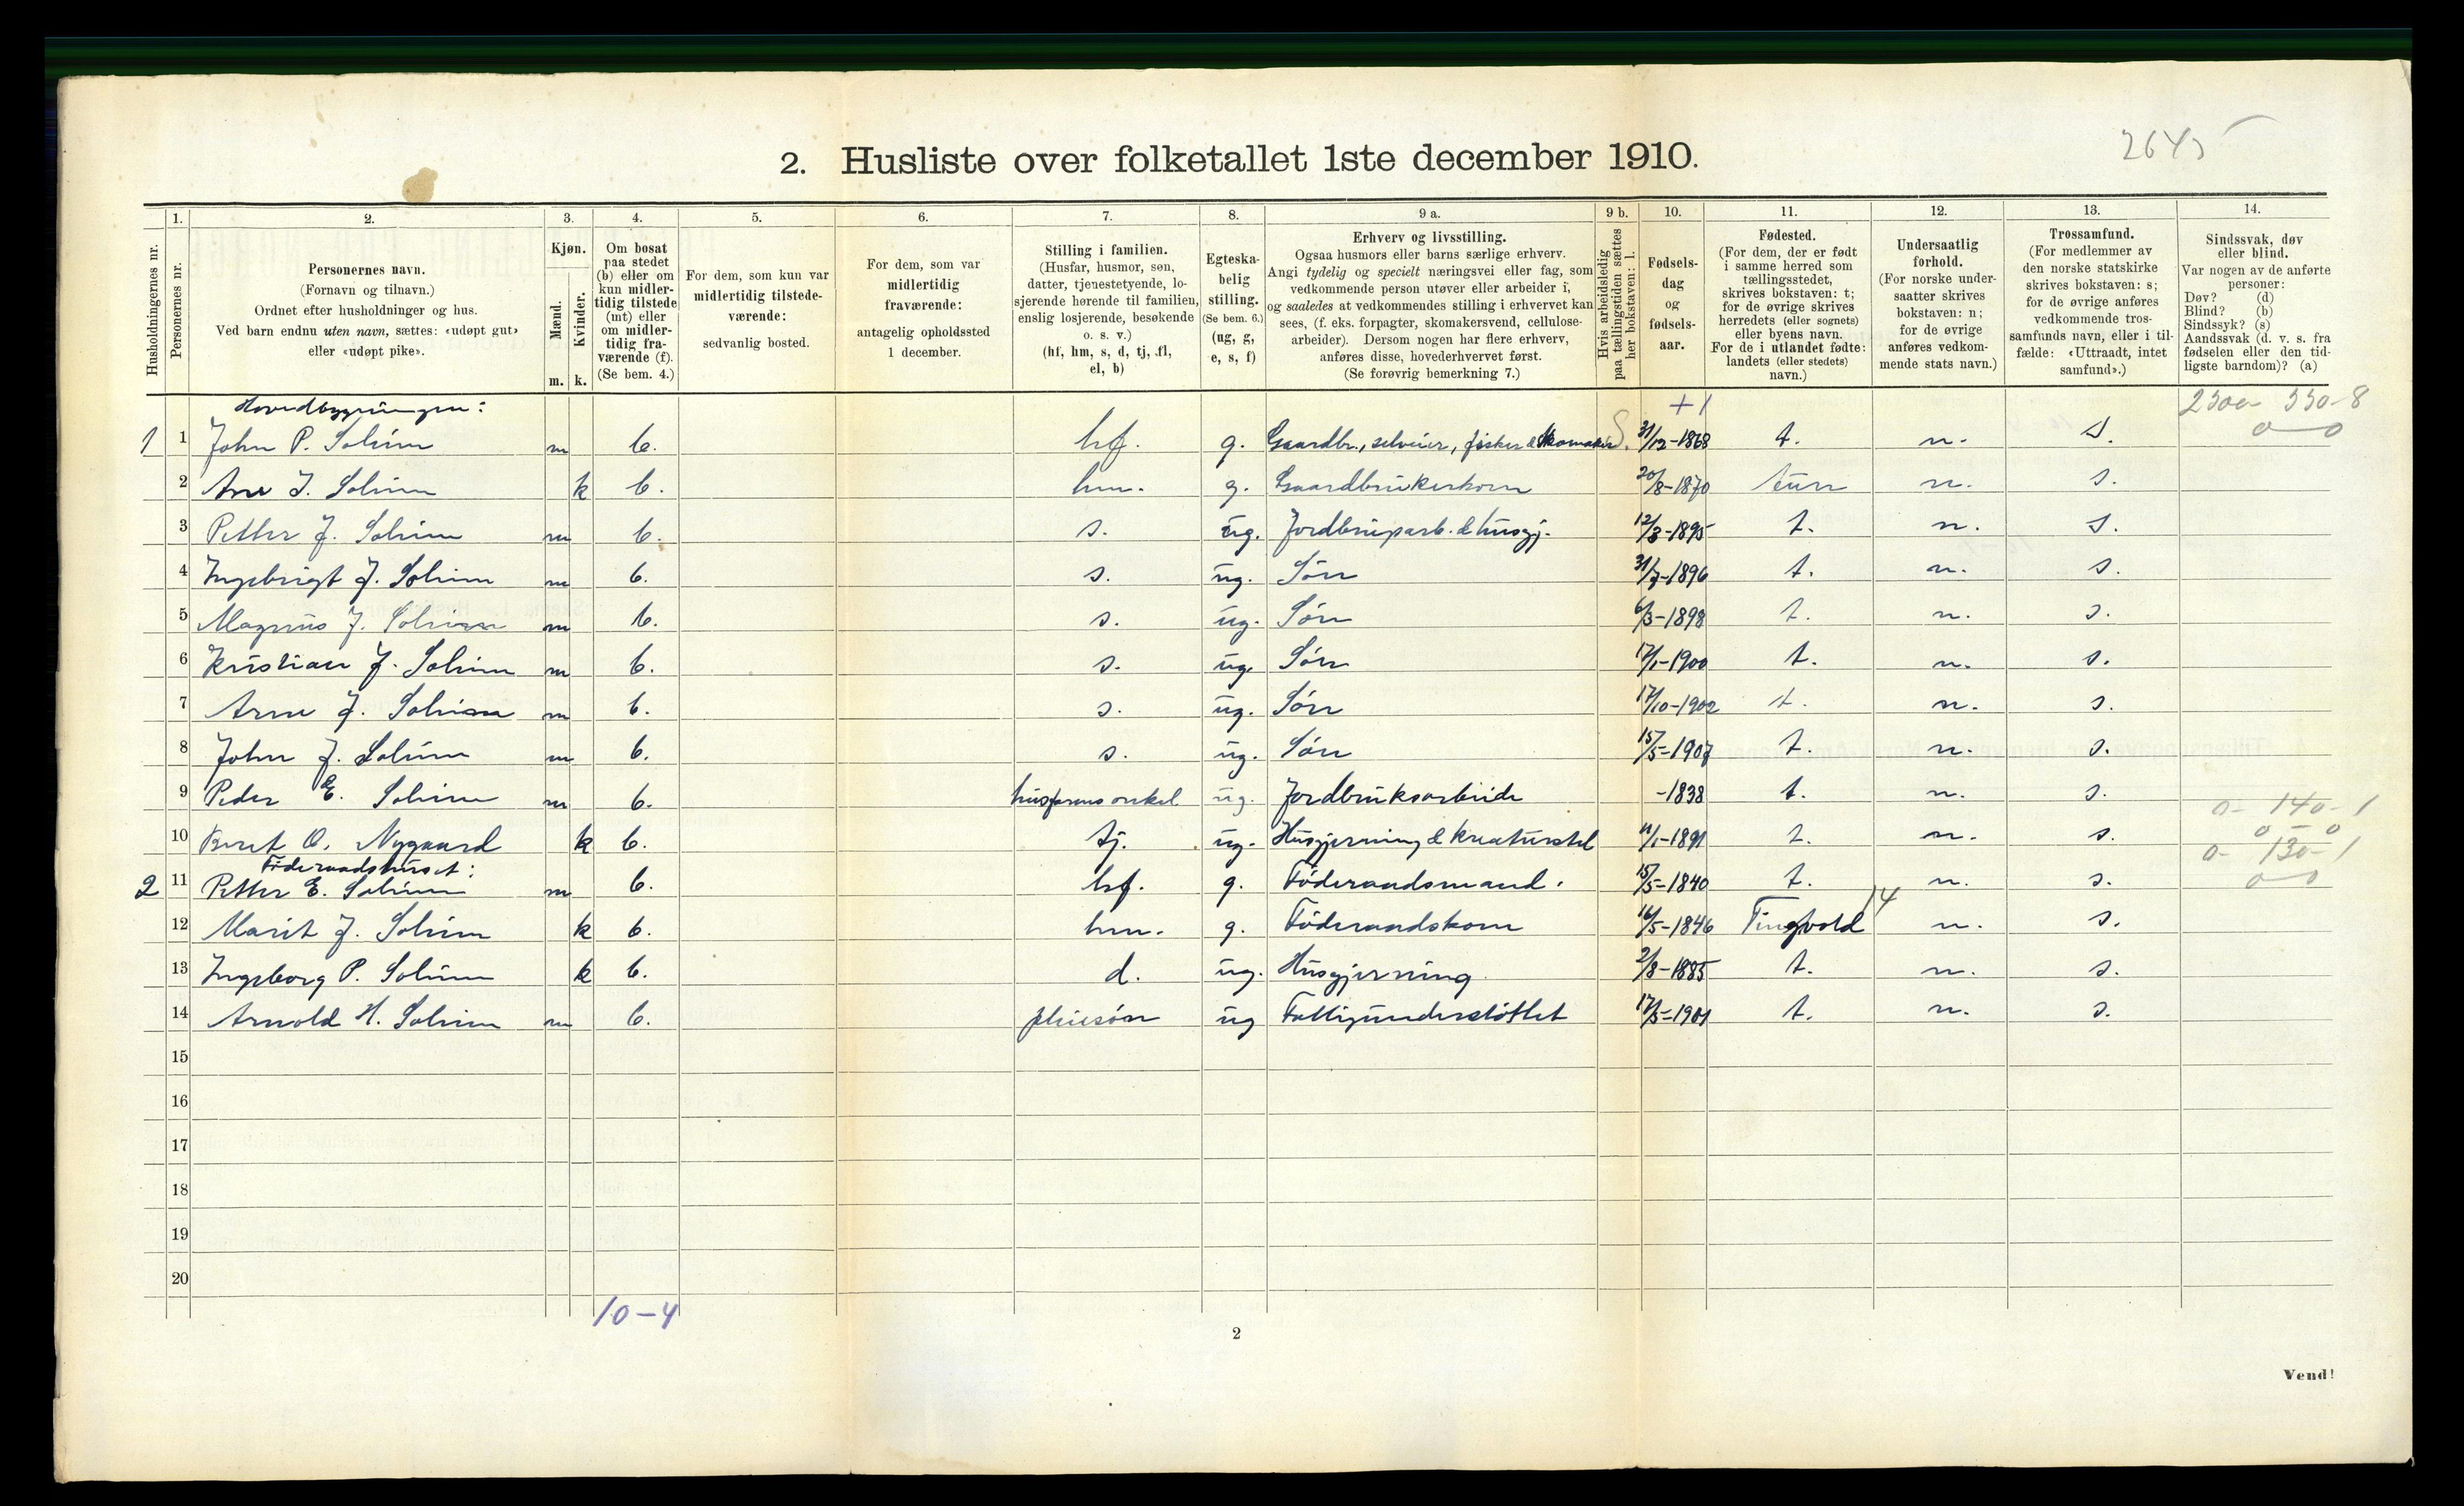 2645
2. Husliste over folketallet 1ste december 1910.
Husholdningernes nr.
1. Personernes nr.
2. Personernes navn.
(Fornavn og tilnavn.)
Ordnet efter husholdninger og hus.
Ved barn endnu uten navn, sættes: «udøpt gut»
eller «udøpt pike».
3. Kjøn.
Mænd. m.
Kvinder. k.
4. Om bosat
paa stedet
(b) eller om
kun midler-
tidig tilstede
(mt) eller
om midler-
tidig fra-
værende (f).
(Se bem. 4.)
5. For dem, som kun var
midlertidig tilstede-
værende:
sedvanlig bosted.
6. For dem, som var
midlertidig
fraværende:
antagelig opholdssted
1 december.
7. Stilling i familien.
(Husfar, husmor, søn,
datter, tjenestetyende, lo-
sjerende hørende til familien,
enslig losjerende, besøkende
o. s. v.)
(hf, hm, s, d, tj, fl,
el, b)
8. Egteska-
belig
stilling.
(Se bem. 6.)
(ug, g,
e, s, f)
9 a. Erhverv og livsstilling.
Ogsaa husmors eller barns særlige erhverv.
Angi tydelig og specielt næringsvei eller fag, som
vedkommende person utøver eller arbeider i,
og saaledes at vedkommendes stilling i erhvervet kan
sees, (f. eks. forpagter, skomakersvend, cellulose-
arbeider). Dersom nogen har flere erhverv,
anføres disse, hovederhvervet først.
(Se forøvrig bemerkning 7.)
9 b. Hvis arbeidsledig
paa tællingstiden sættes
her bokstaven: l.
10. Fødsels-
dag
og
fødsels-
aar.
11. Fødested.
(For dem, der er født
i samme herred som
tællingsstedet,
skrives bokstaven: t;
for de øvrige skrives
herredets (eller sognets)
eller byens navn.
For de i utlandet fødte:
landets (eller stedets)
navn.)
12. Undersaatlig
forhold.
(For norske under-
saatter skrives
bokstaven: n;
for de øvrige
anføres vedkom-
mende stats navn.)
13. Trossamfund.
(For medlemmer av
den norske statskirke
skrives bokstaven: s;
for de øvrige anføres
vedkommende tros-
samfunds navn, eller i til-
fælde: «Uttraadt, intet
samfund».)
14. Sindssvak, døv
eller blind.
Var nogen av de anførte
personer:
Døv? (d)
Blind? (b)
Sindssyk? (s)
Aandssvak (d. v. s. fra
fødselen eller den tid-
ligste barndom)? (a)
Hovedbygningen: +1
1 1 John P. Solum m b. hf. g. Gaardbr., selveier, fisker & skomaker 31/12-1868 t. n. s. 0-0
2 Ane J. Solum k b. hm. g. Gaardbrukerkone 20/8-1870 Aure n. s.
3 Petter J. Solum m b. s. ug. Jordbruksarb. & husgj. 12/3-1895 t. n. s.
4 Ingebrigt J. Solum m b. s. ug. Søn 31/7-1896 t. n. s.
5 Magnus J. Solum m b. s. ug. Søn 6/3-1898 t. n. s.
6 Kristian J. Solum m b. s. ug. Søn 17/1-1900 t. n. s.
7 Arne J. Solum m b. s. ug. Søn 17/10-1902 t. n. s.
8 John J. Solum m b. s. ug. Søn 15/5-1907 t. n. s.
9 Peder E. Solum m b. husfarens onkel ug. Jordbruksarbeide -1838 t. n. s. 0- 140- 1
10 Beret O. Nygaard k b. tj. ug. Husgjerning & kreaturstel 11/1-1891 t. n. s. 0-0
Föderaadshuset: 0- 130- 1
2 11 Petter E. Solum m b. hf. g. Föderaadsmand. 15/5-1840 t. n. s. 0-0
12 Marit J. Solum k b. hm. g. Föderaadskone 16/5-1846 Tingvold 14 n. s.
13 Ingeborg P. Solum k b. d. ug. Husgjerning 2/8-1885 t. n. s.
14 Arnold H. Solum m b. pleiesön ug Fattigunderstöttet 17/5-1901 t. n. s.
15
16
17
18
19
20
10-4
2
Vend!